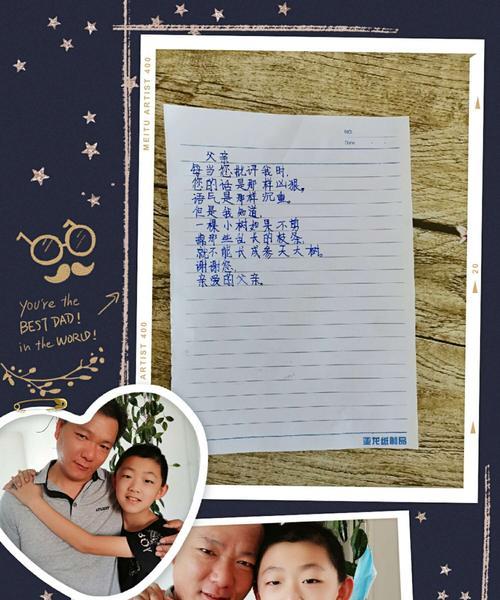 MEITU ARTIST 400
NO.
Date
父亲
每当您批评我时，
您的话是那样凶狠。
语气是那样沉重。
但是我知道，
一棵小树如果不剪
掉那些乱长的枝条，
就不能长成参天大树。
谢谢您，
亲爱的父亲。
亚龙纸制品
20
You're the
BEST DAD!
in the WORLD!
ARTIST 400